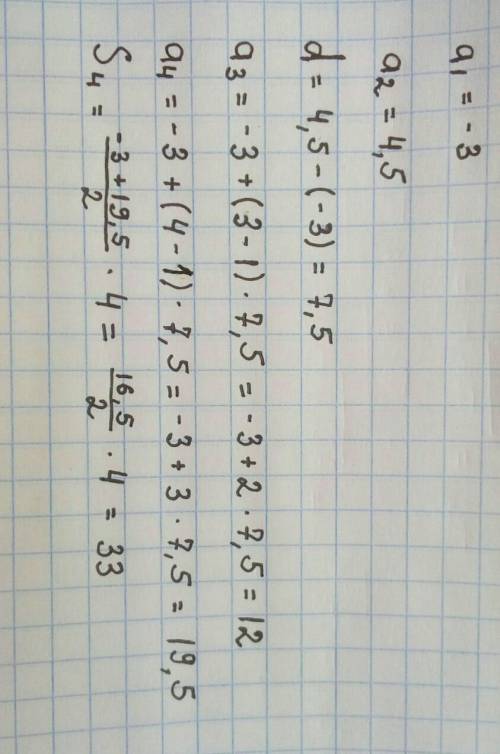 a₁ = -3
a₂ = 4,5
d = 4,5 - (-3) = 7,5
a₃ = -3 + (3-1) · 7,5 = -3 + 2 · 7,5 = 12
a₄ = -3 + (4-1) · 7,5 = -3 + 3 · 7,5 = 19,5
S₄ = \frac{-3+19,5}{2} · 4 = \frac{16,5}{2} · 4 = 33